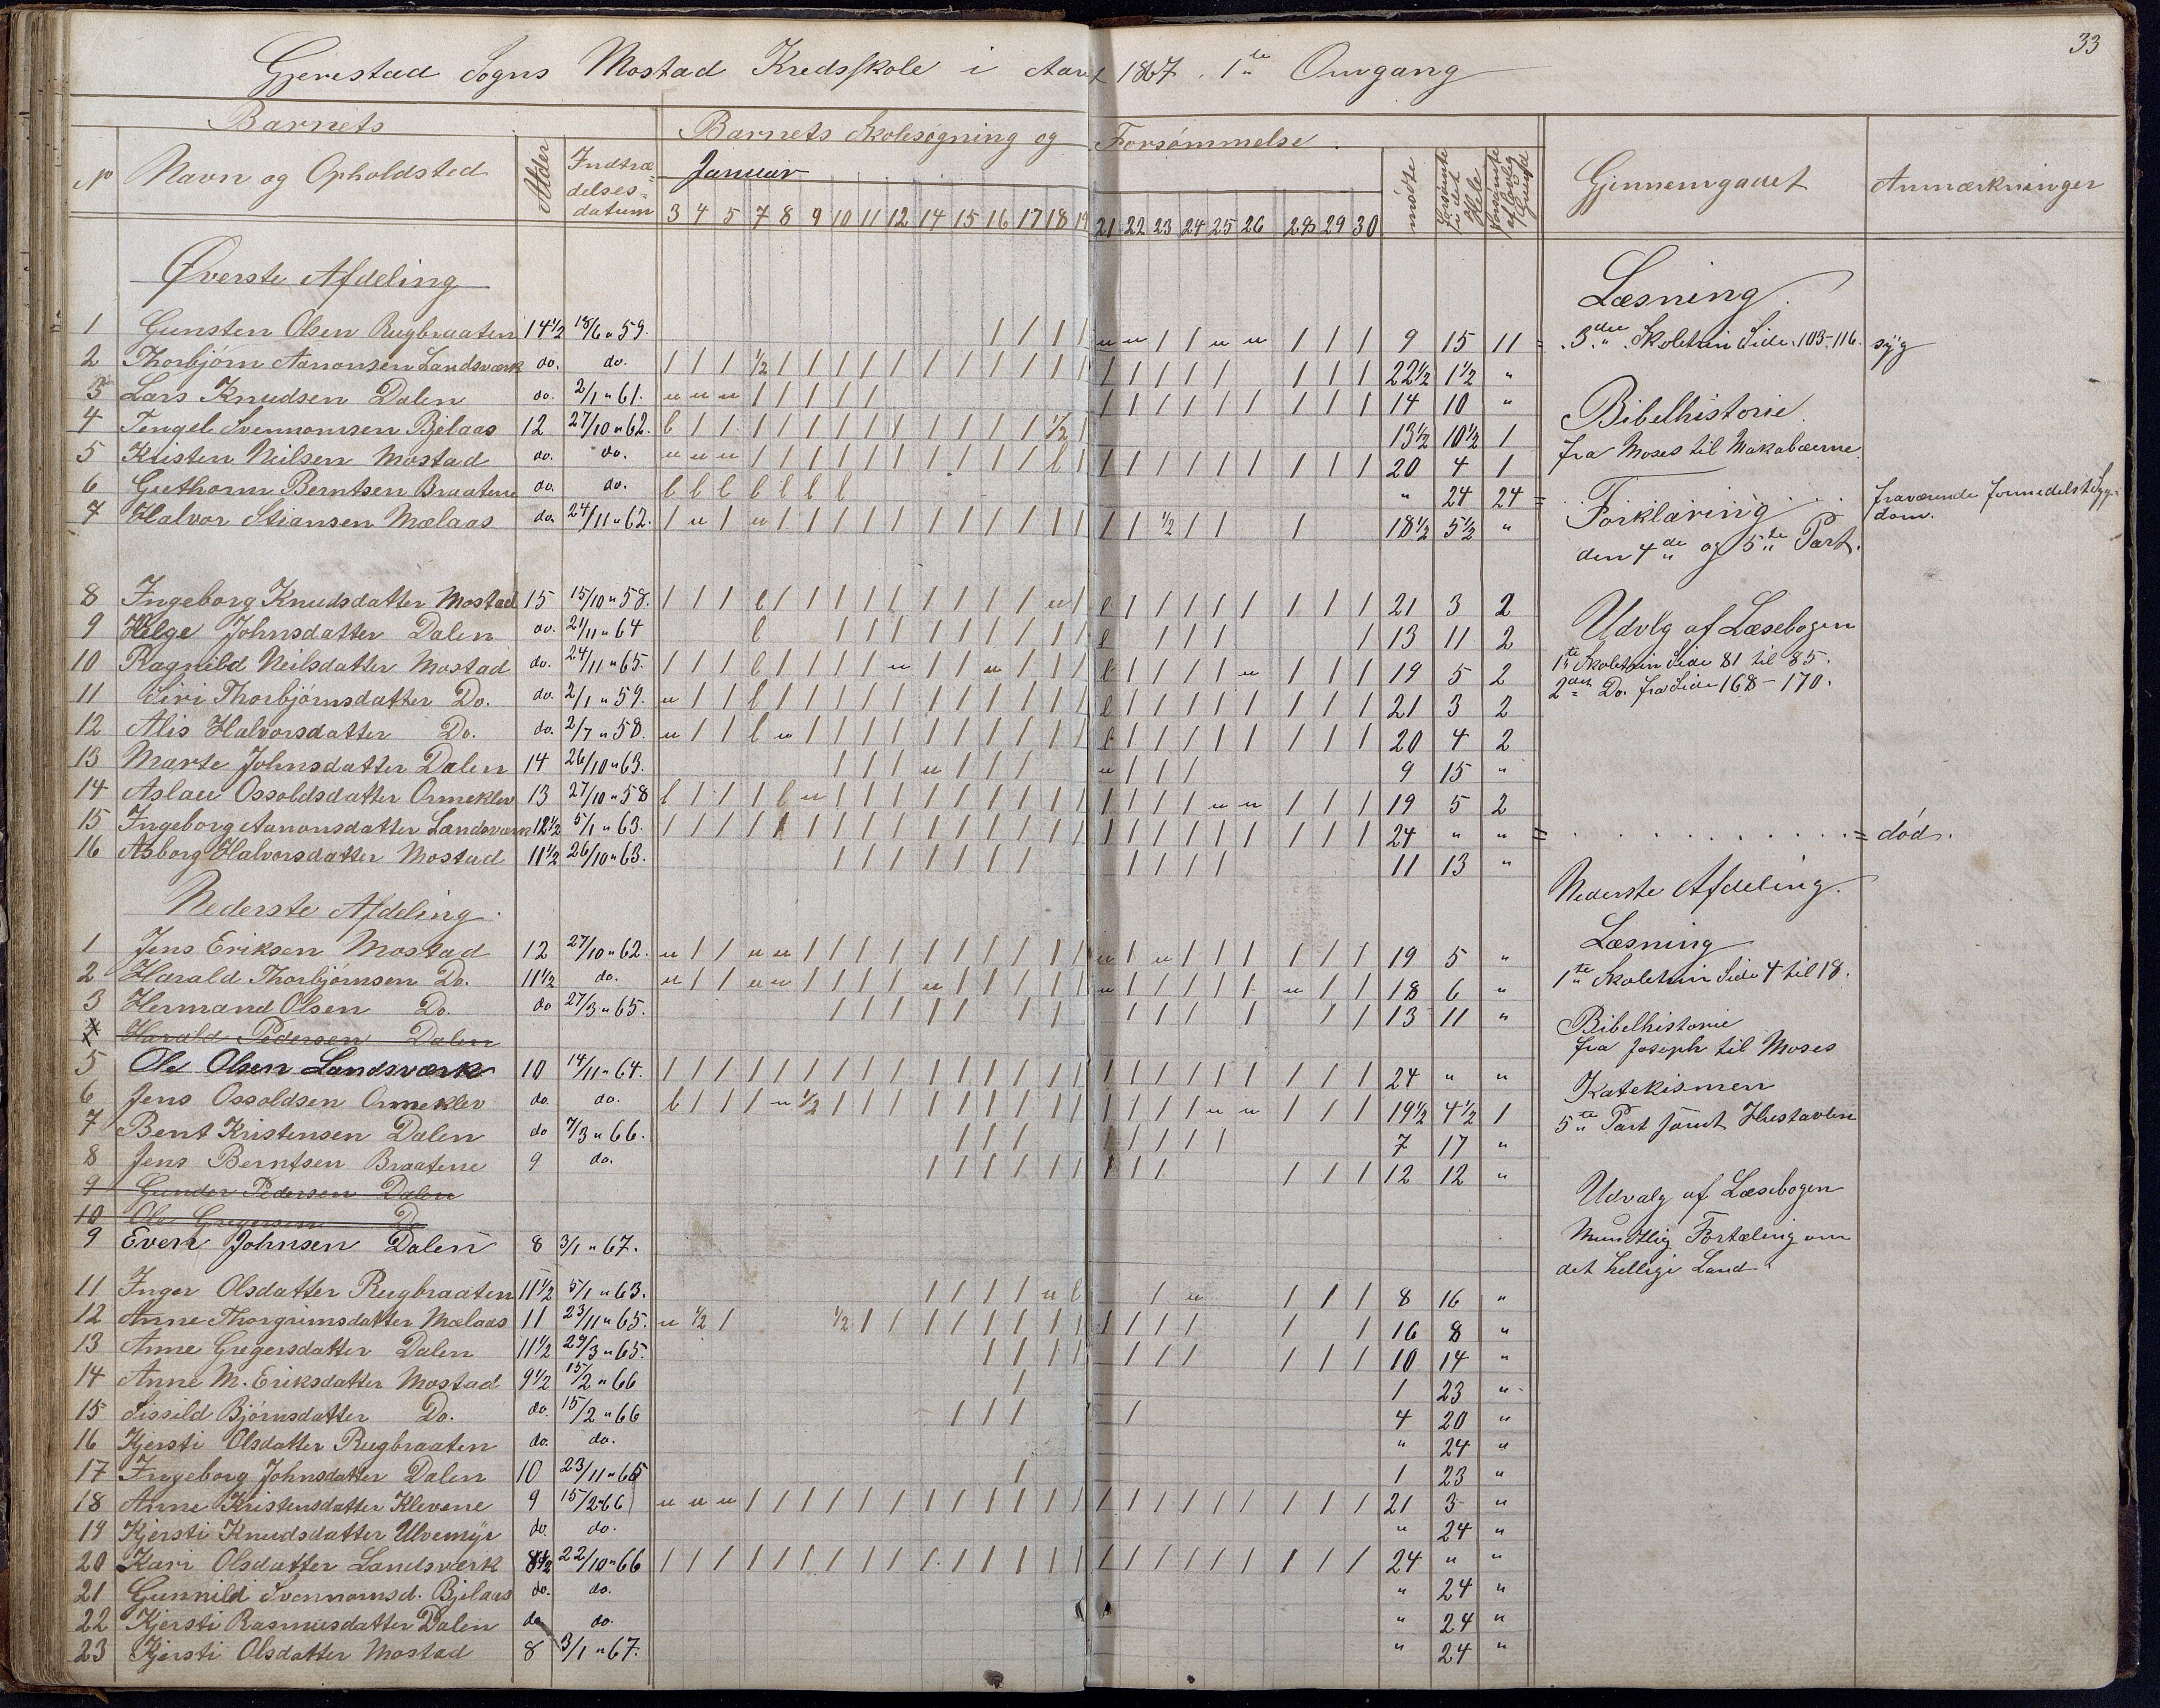 33
Gjerestad Sogns Mostad Kredsskole i Aaret 1867. 1ste Omgang
Barnets
Barnets Skolesøgning og Forsømmelse.
No Navn og Opholdsted Alder Indtrædelsesdatum Januar mødte forsømte i det Hele forsømte af lovlig Grund Gjennemgaaet Anmærkninger
3 4 5 7 8 9 10 11 12 14 15 16 17 18 19 21 22 23 24 25 26 28 29 30
Øverste Afdeling
1 Gunsten Olsen Rugbraaten 14 1/2 18/6 " 59. / / / / " " / / " " / / / 9 15 11 =
2 Thorbjørn Aanonsen Landsværk do. do. / / / 1/2 / / / / / / / / / / / / / / / / / / / 22 1/2 1 1/2 "
3 Lars Knudsen Dalen do. 2/1 " 61. " " " / / / / / / / / / / / / / / 14 10 "
4 Tengel Svennomsen Bjelaas 12 27/10 " 62. l / / / / / / / / / / / / 1/2 / 13 1/2 10 1/2 1
5 Kristen Neilsen Mostad do. do. " " " / / / / / / / / / / l / / / / / / / / / / 20 4 1
6 Guthorm Berntsen Braatene do. do. l l l l l l l " 24 24 =
7 Halvor Stiansen Mælaas do. 24/11 " 62. / " / " / / / / / / / / / / / / / 1/2 / / / 18 1/2 5 1/2 "
8 Ingeborg Knudsdatter Mostad 15 15/10 " 58. / / / l / / / / / / / / / " / l / / / / / / / / 21 3 2
9 Helge Johnsdatter Dalen do. 21/11 " 64 l / / / / / / / / / l / / / / 13 11 2
10 Ragnild Neilsdatter Mostad do. 24/11 " 65. / / / l / / / / " / / " / / / l / / / / " / / / 19 5 2
11 Siri Thorbjørnsdatter Do. do. 2/1 " 59. " / / l / / / / / / / / / / / l / / / / / / / / 21 3 2
12 Alis Halvorsdatter Do. do. 2/7 " 58. " / / l " / / / / / / / / / / l / / / / / / / / 20 4 2
13 Marte Johnsdatter Dalen 14 26/10 " 63. / / / " / / / " / / / 9 15 "
14 Aslau Ossoldsdatter Ormeklev 13 27/10 " 58 l / / / l " / / / / / / / / / / / / / " " / / / 19 5 2
15 Ingeborg Aanonsdatter Landsværk 12 1/2 5/1 " 63. / / / / / / / / / / / / / / / / / / / / / / / / 24 " " = = død.
16 Asborg Halvorsdatter Mostad 11 1/2 26/10 " 63. / / / / / / / / / / / 11 13 "
Nederste Afdeling.
1 Jens Eriksen Mostad 12 27/10 " 62. " / / " " / / / / / / / / / / " / " / / / / / / 19 5 "
2 Harald Thorbjørnsen Do. 11 1/2 do. " / / " " / / / / " / / / / / " / / / / / " / / 18 6 "
3 Hermand Olsen Do. do 27/3 " 65. / / / / / / / / / / / / / 13 11 "
4 Harald Pedersen Dalen
5 Ole Olsen Landsværk 10 14/11 " 64. / / / / / / / / / / / / / / / / / / / / / / / / 24 " "
6 Jens Ossoldsen Ormeklev do. do. l / / / " 1/2 / / / / / / / / / / / / / " " / / / 19 1/2 4 1/2 1
7 Bent Kristensen Dalen do 7/3 " 66. / / / / / / / / 7 17 "
8 Jens Berntsen Braatene 9 do. / / / / / / / / / / / / 12 12 "
9 Gunder Pedersen Dalen
10 Ole Gregersen Do
9 Even Johnsen Dalen 8 3/1 " 67.
11 Inger Olsdatter Rugbraaten 11 1/2 5/1 " 63. / / / / " l / " / / / 8 16 "
12 Anne Thorgrimsdatter Mælaas 11 23/11 " 65. " 1/2 / 1/2 / / / / / / / / / / / / / / 16 8 "
13 Anne Gregersdatter Dalen 11 1/2 27/3 " 65. / / / / / / / / / / 10 14 "
14 Anne M. Eriksdatter Mostad 9 1/2 15/2 " 66 / 1 23 "
15 Sissild Bjørnsdatter Do. do. 15/2 " 66 / / / / 4 20 "
16 Kjersti Olsdatter Rugbraaten do. do. " 24 "
17 Ingeborg Johnsdatter Dalen 10 23/11 " 65 / 1 23 "
18 Anne Kristensdatter Klevene 9 15/2 " 66 " " " / / / / / / / / / / / / / / / / / / / / / 21 3 "
19 Kjersti Knudsdatter Ulvemyr do. do. " 24 "
20 Kari Olsdatter Landsværk 8 1/2 22/10 " 66 / / / / / / / / / / / / / / / / / / / / / / / / 24 " "
21 Gunnild Svennomsd. Bjelaas do. do. " 24 "
22 Kjersti Rasmusdatter Dalen do do. " 24 "
23 Kjersti Olsdatter Mostad 8 3/1 " 67. " 24 "
Læsning.
3die Skoletrin Side. 103-116. syg
Bibelhistorie.
fra Moses til Makabæerne.
Forklaring fraværende formedelst Sygdom.
den 4de og 5te Part.
Udvlg af Læsebogen
1ste Skoletrin Side 81 til 85.
2det Do. fra Side 168-170.
Nederste Afdeling.
Læsning
1ste Skoletrin Side 4 til 18.
Bibelhistorie
fra Joseph til Moses
Katekismen
5te Part samt Hustavlen
Udvalg af Læsebogen
Mundtlig Fortæling om
det hellige Land